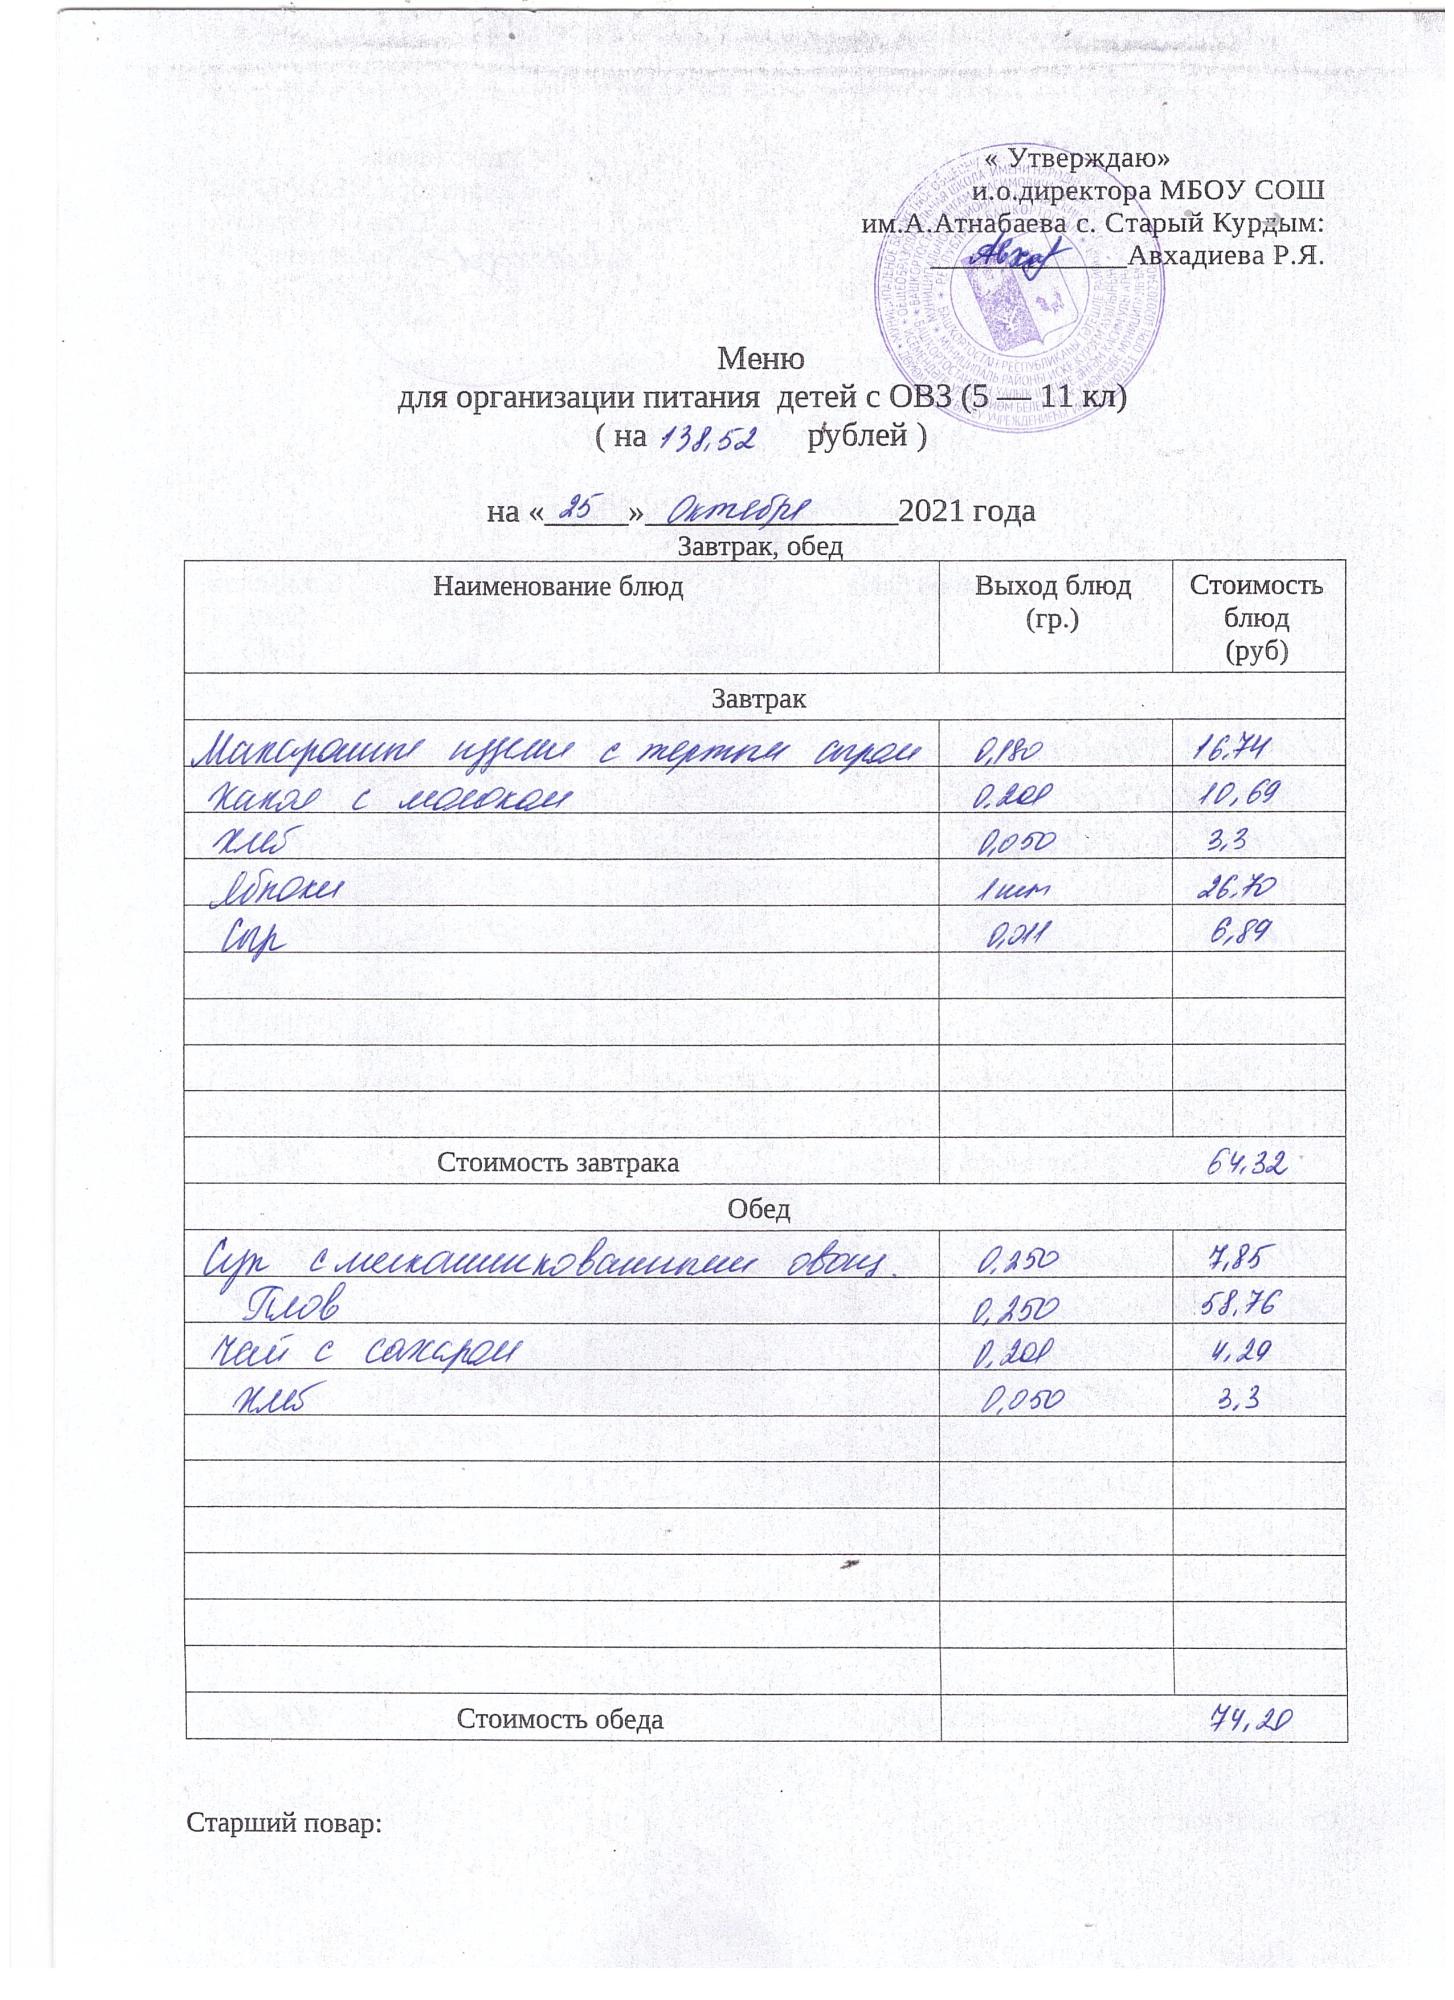 « Утверждаю»
и.о.директора МБОУ СОШ
им.А.Атнабаева с. Старый Курдым:
Авхадиева Р.Я.
Меню
для организации питания детей с ОВЗ (5 — 11 кл)
( на 138,52 рублей )
на « 25 » Октября 2021 года
Завтрак, обед
Наименование блюд Выход блюд (гр.) Стоимость блюд (руб)
Завтрак
Макаронные изделия с тертым сыром 0,180 16,74
Какао с молоком 0,200 10,69
Хлеб 0,050 3,3
Яблоки 1шт 26,70
Сыр 0,011 6,89
Стоимость завтрака 64,32
Обед
Суп с мелкошинкованными овощ. 0,250 7,85
Плов 0,250 58,76
Чай с сахаром 0,200 4,29
Хлеб 0,050 3,3
Стоимость обеда 74,20
Старший повар: